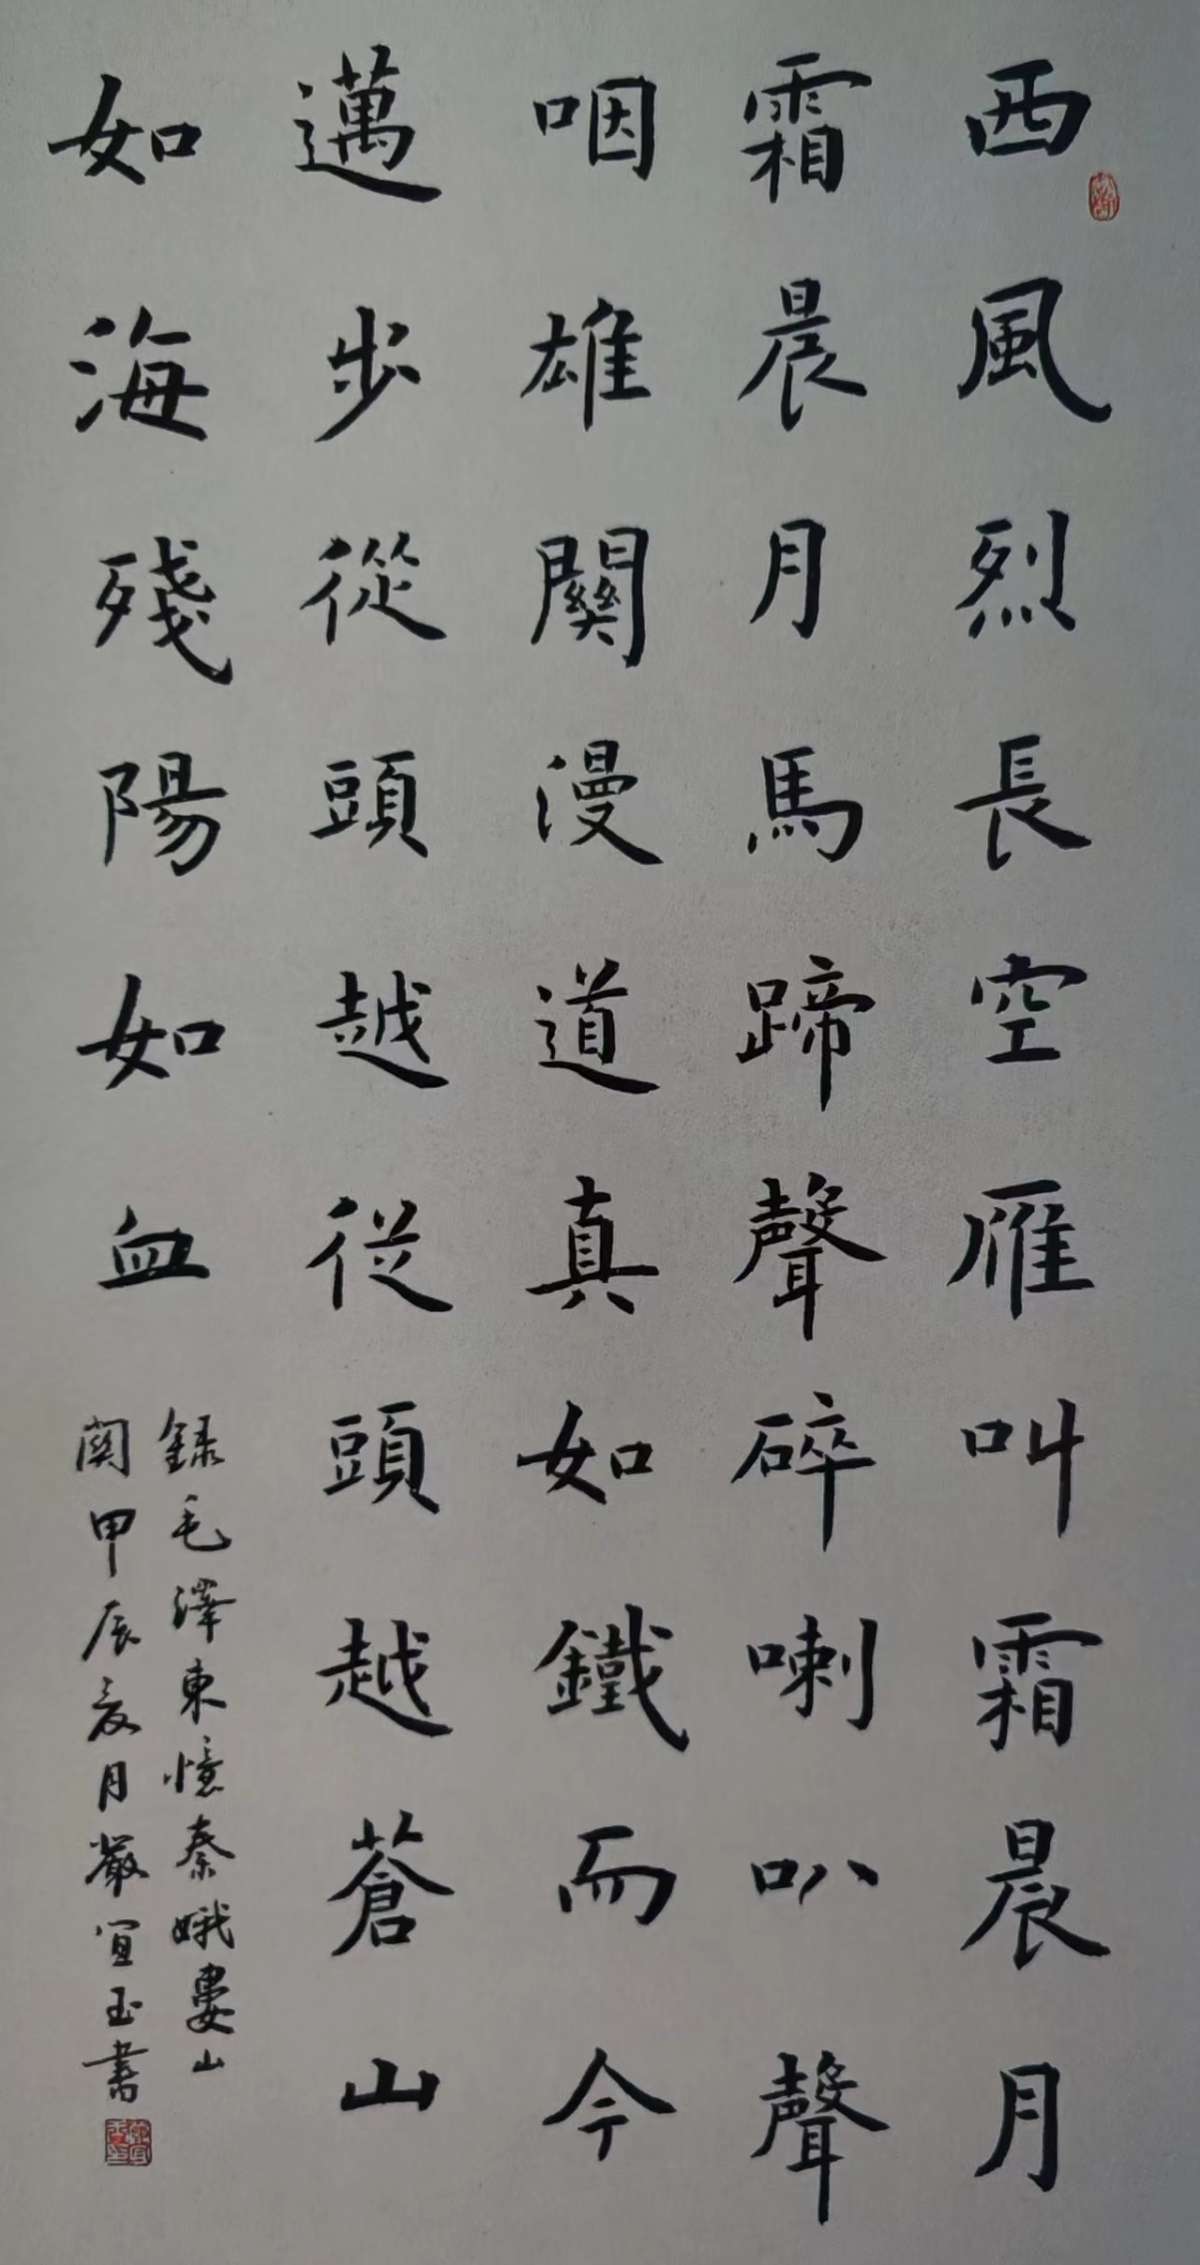 西風烈長空雁叫霜晨月
霜晨月馬蹄聲碎喇叭聲
咽雄關漫道真如鐵而今
邁步從頭越從頭越蒼山
如海殘陽如血
録毛澤東憶秦娥婁山
関甲辰夏月嚴宜玉書